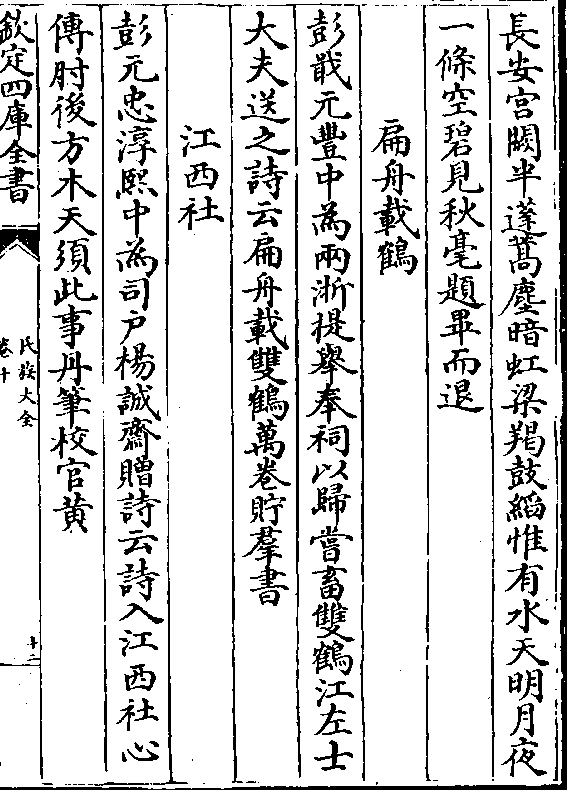 長安宮闕半蓬蒿塵暗虹梁羯鼓縚惟有水天明月夜
一條空碧見秋毫題畢而退
扁舟載鶴
彭戢元豐中為兩浙提舉奉祠以歸嘗畜雙鶴江左士
大夫送之詩云扁舟載雙鶴萬卷貯羣書
江西社
彭元忠淳熙中為司戶楊誠齋贈詩云詩入江西社心
傳肘後方木天須此事丹筆校官黄
欽定四庫全書
氏族大全
卷十
十二